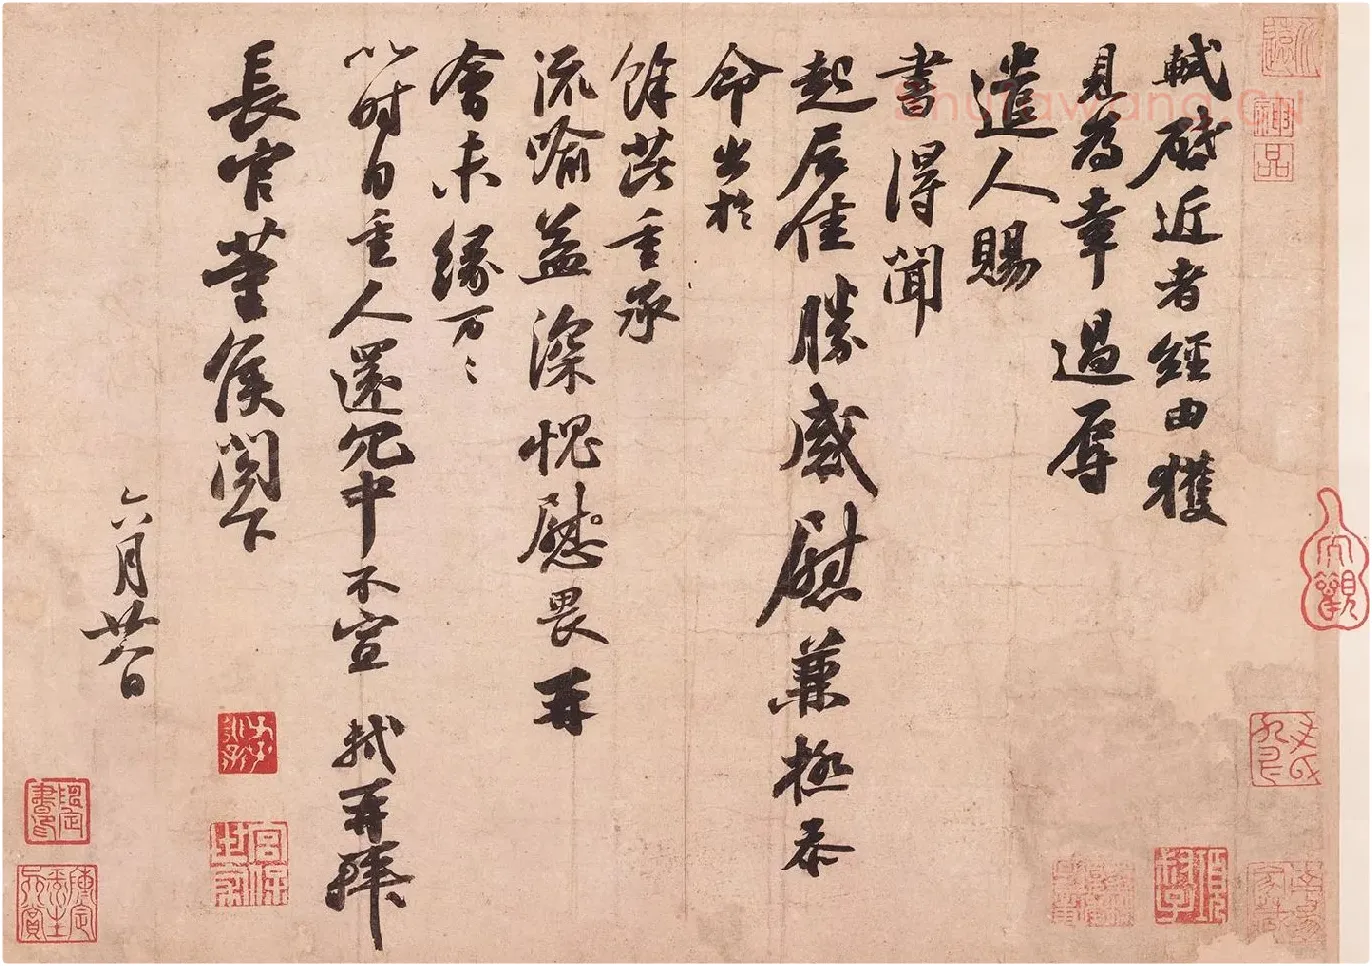 軾啟近者經由獲
見為幸過辱
遣人賜
書得聞
起居佳勝感慰兼極忝
命出於
餘芘重承
流喻益深愧慰畏再
會未緣万〻
以時自重人還冗中不宣 軾再拜
長官董侯閤下
六月廿八日
神
品
Shufawang.CN